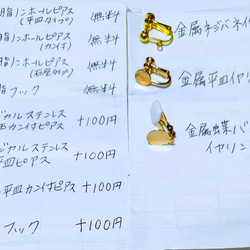 脂ノンホールピアス 無料
(平皿タイプ)
脂ノンホールピアス 無料
(カン付)
脂ノンホールピアス 無料
(石座タイプ)
脂フック 無料
ジカルステンレス +100円
玉カン付ピアス
ジカルステンレス +100円
平皿ピアス
平皿カン付ピアス +100円
フック +100円
金属ネジバネイ
金属平皿イヤリ
金属蝶バ
イヤリン